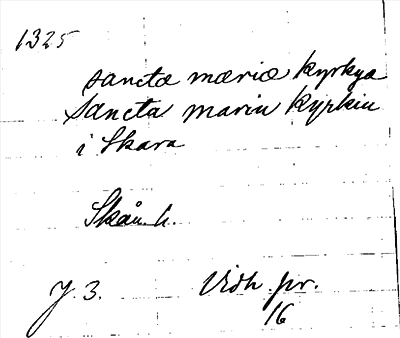 1325
sanctæ mæriæ kyrkyæ
Sancta mariu kyrkiu
i Skara
Skån. h.
J 3. Vidh. pr.
16